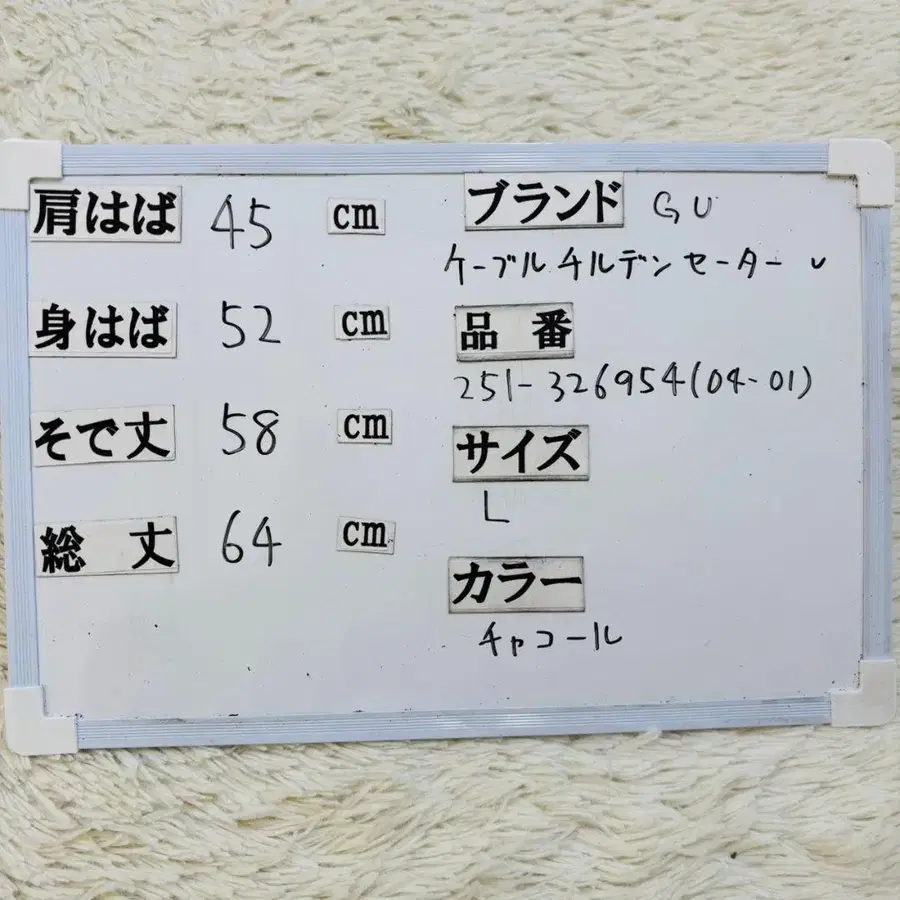 肩はば 45 cm
身はば 52 cm
そで丈 58 cm
総丈 64 cm
ブランド GU
ケーブルチルデンセーター
品番
251-326954(04-01)
サイズ
L
カラー
チャコール